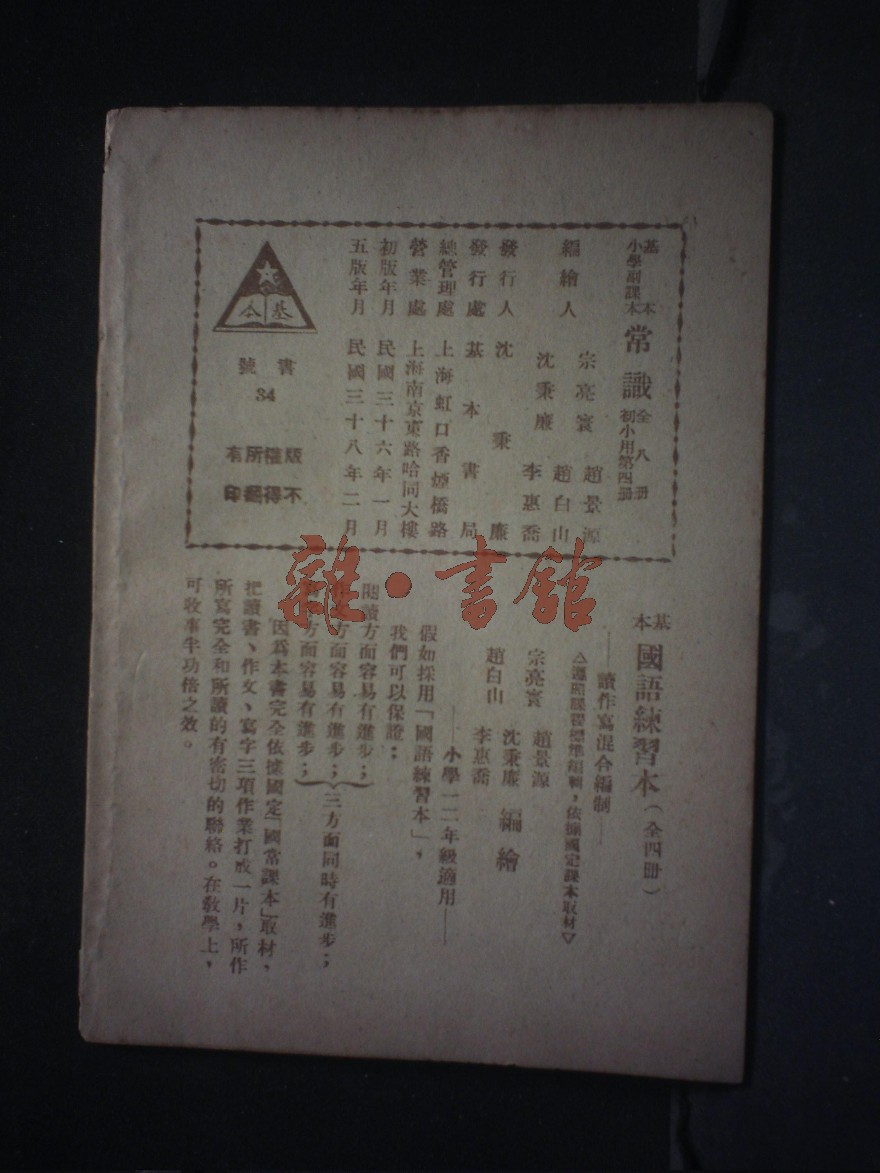 基本
小學副課本
常識
全八冊
初小用第四冊
編繪人
宗亮寰 趙景源
沈秉廉 趙白山
李惠喬
發行人 沈秉廉
發行處 基本書局
總管理處 上海虹口香煙橋路
營業處 上海南京東路哈同大樓
初版年月 民國三十六年一月
五版年月 民國三十八年二月
基本
書號
34
版權所有
不得翻印
基本
國語練習本(全四冊)
——讀作寫混合編制——
△遵照課程標準編輯,依據國定課本取材▽
宗亮寰 趙景源
沈秉廉 編繪
趙白山 李惠喬
——小學一二年級適用——
假如採用「國語練習本」,
我們可以保證:
閱讀方面容易有進步;
作文方面容易有進步;
方面容易有進步;
三方面同時有進步;
因爲本書完全依據國定「國常課本」取材,
把讀書、作文、寫字三項作業打成一片,所作
所寫完全和所讀的有密切的聯絡。在教學上,
可收事半功倍之效。
雜·書館